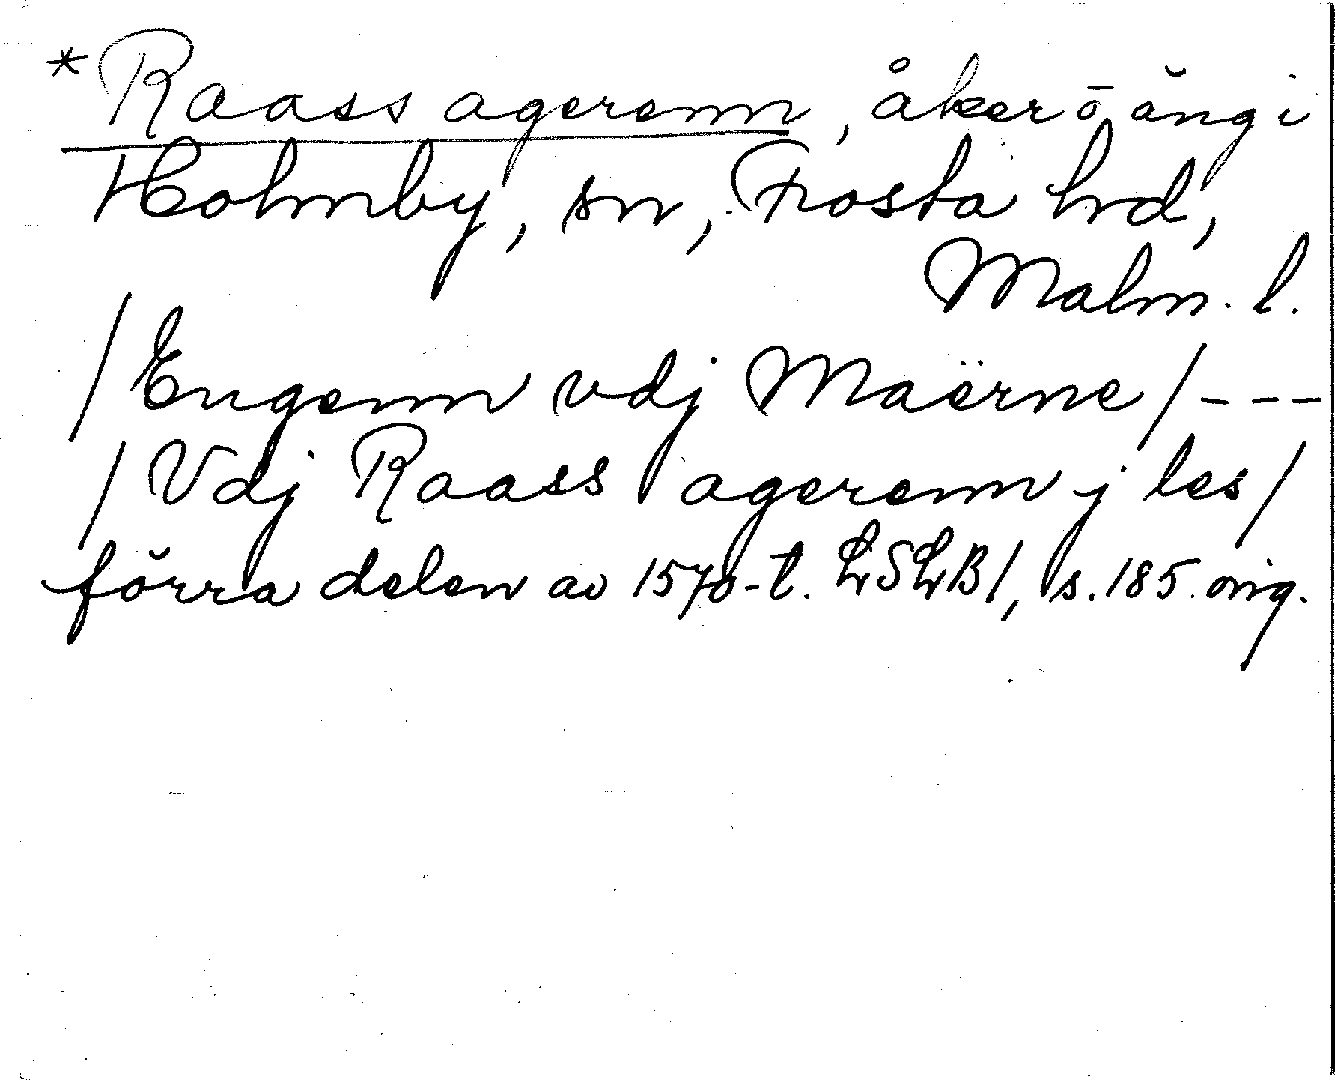 * Raass agerenn, åker ō äng i
Holmby, sn, Frosta hrd,
Malm. l.
/Engenn vdj Maërne/---
/Vdj Raass agerenn j les/
förra delen av 1570-t. LSLB1, s. 185 orig.